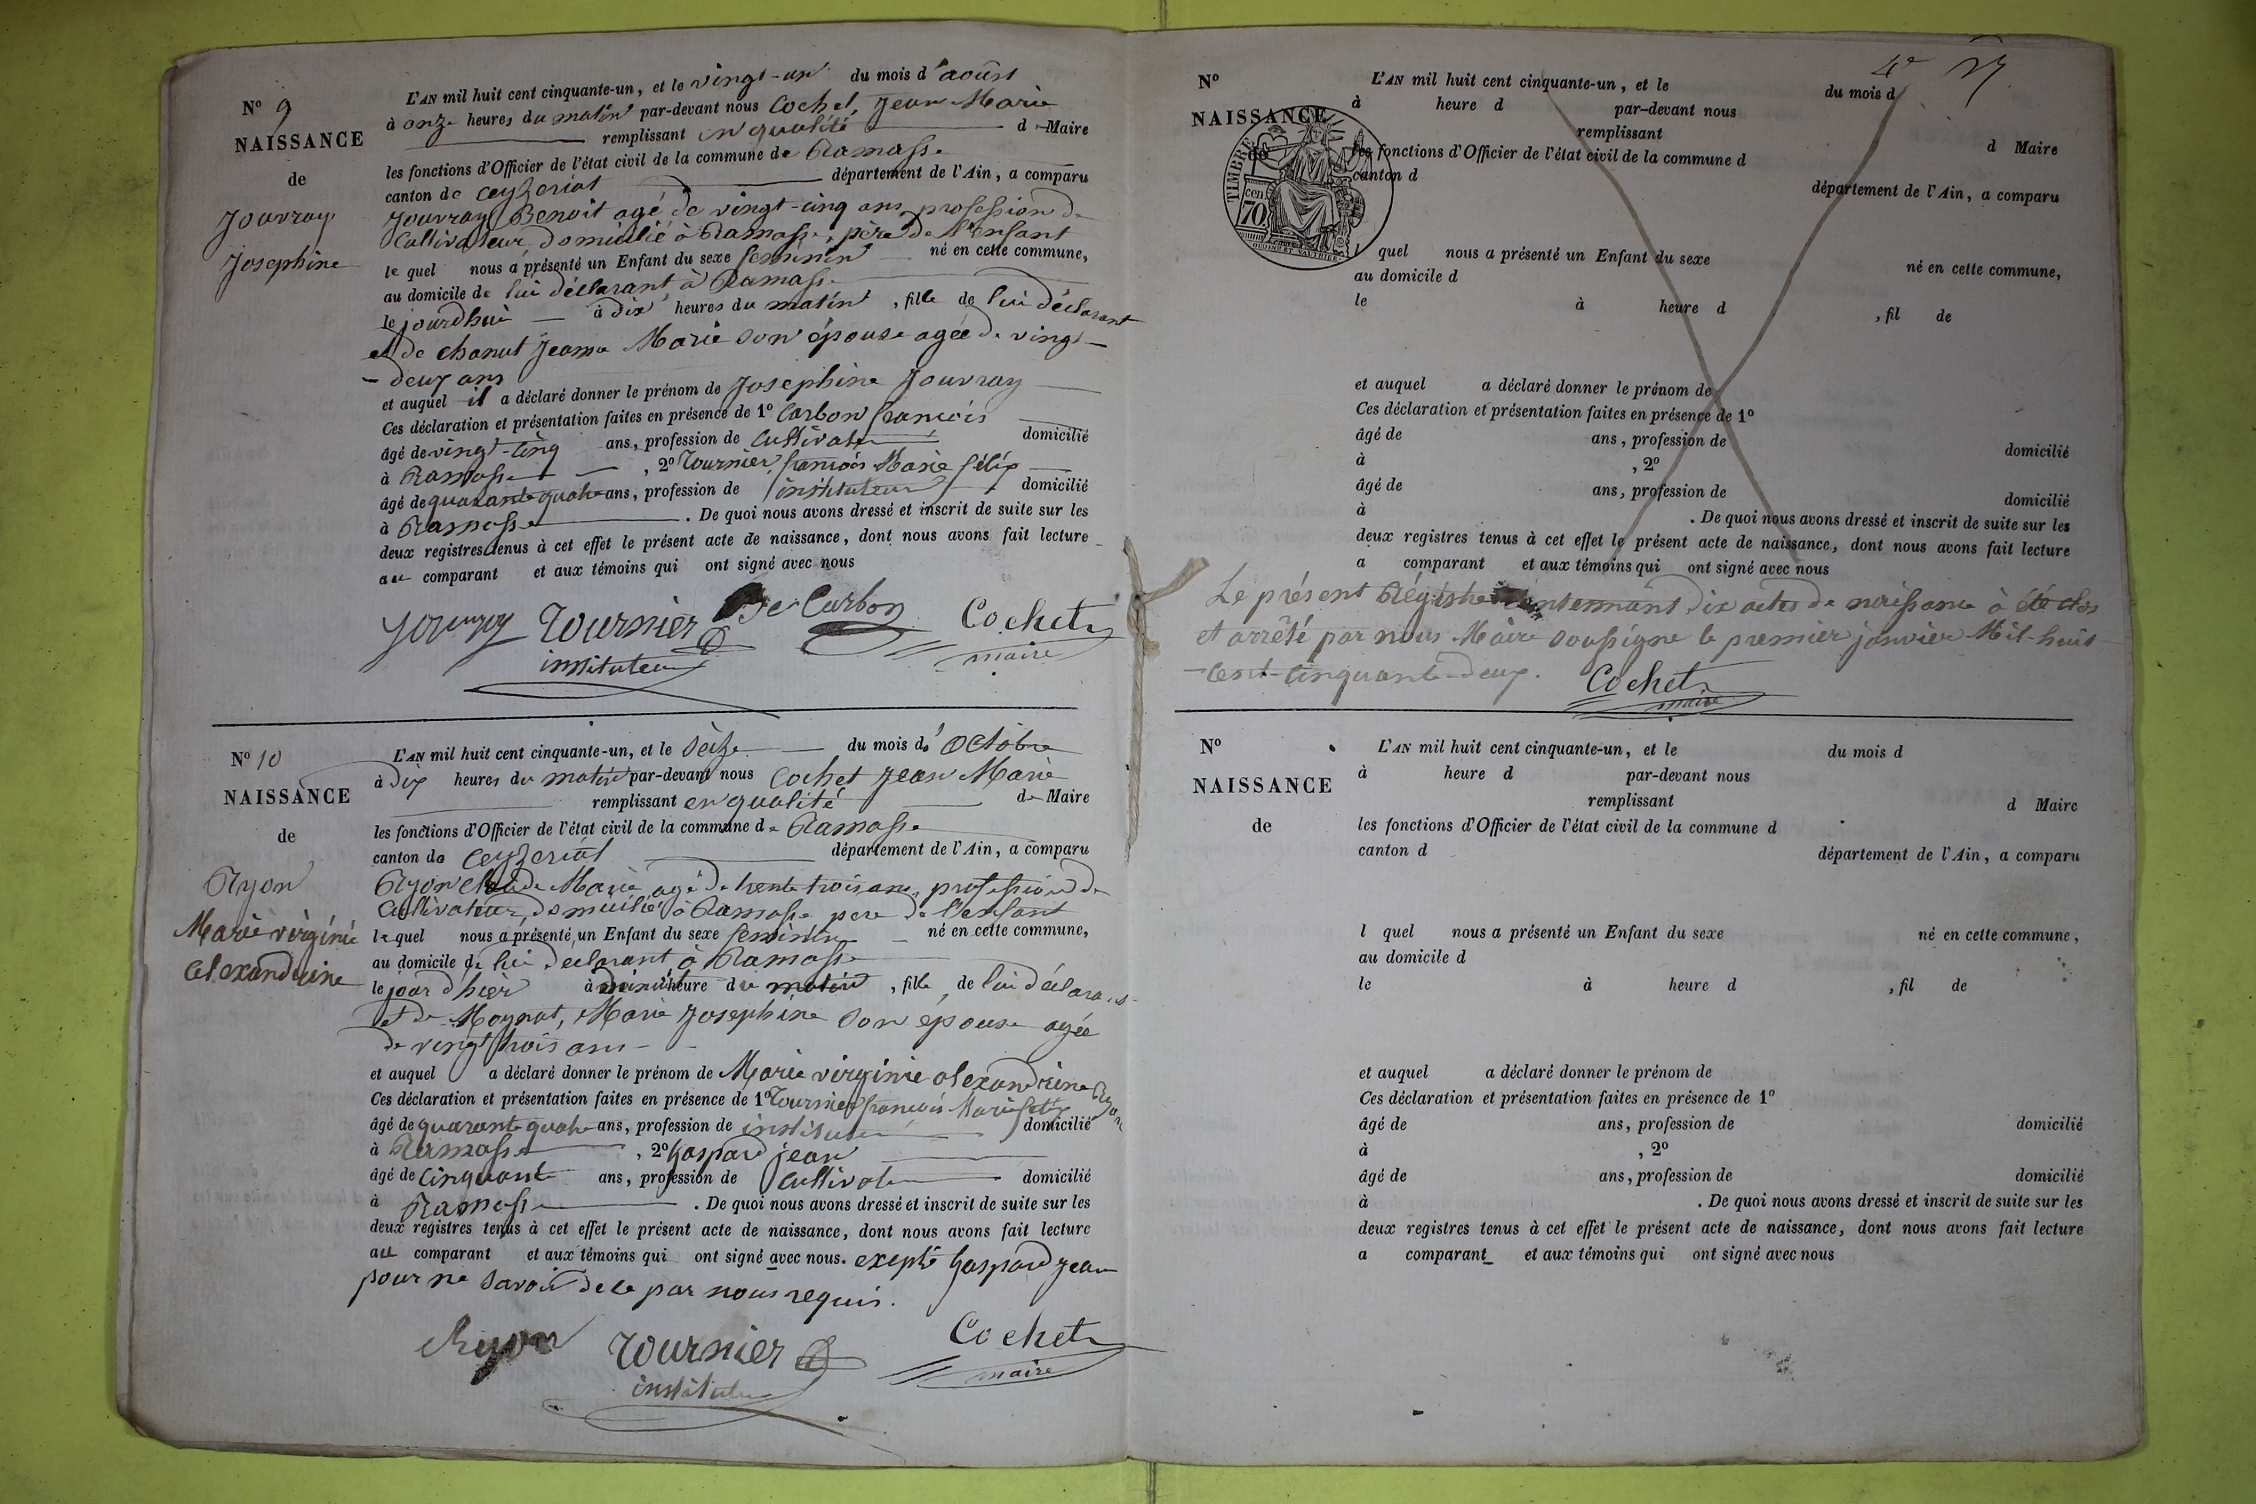 N° 9
NAISSANCE
de
Jouvray
Josephine
L'AN mil huit cent cinquante-un, et le vingt-un du mois d'août
à onze heures du matin par-devant nous Cochet, Jean Marie
remplissant en qualité de Maire
les fonctions d'Officier de l'état civil de la commune de Ramasse
canton de Ceyzeriat département de l'Ain, a comparu
Jouvray Benoit agé de vingt-cinq ans profession de
Cultivateur domicilié à Ramasse, père de l'enfant
lequel nous a présenté un Enfant du sexe féminin né en cette commune,
au domicile de lui déclarant à Ramasse
le jourd'hui à dix heures du matin, fille de lui déclarant
et de Chanut Jeanne Marie son épouse agée de vingt-
-deux ans
et auquel il a déclaré donner le prénom de Josephine Jouvray
Ces déclaration et présentation faites en présence de 1° Carbon françois
âgé de vingt-cinq ans, profession de Cultivateur domicilié
à Ramasse, 2° Tournier, françois Marie félix
âgé de quarante quatre ans, profession de instituteur domicilié
à Ramasse. De quoi nous avons dressé et inscrit de suite sur les
deux registres tenus à cet effet le présent acte de naissance, dont nous avons fait lecture
au comparant et aux témoins qui ont signé avec nous
Jouvray Tournier Carbon Cochet
instituteur maire
N° 10
NAISSANCE
de
Ryon
Marie virginie
alexandrine
L'AN mil huit cent cinquante-un, et le seize du mois d'Octobre
à dix heures du matin par-devant nous Cochet Jean Marie
remplissant en qualité de Maire
les fonctions d'Officier de l'état civil de la commune de Ramasse
canton de Ceyzeriat département de l'Ain, a comparu
Ryon Claude Marie agé de trente trois ans, profession de
Cultivateur, domicilié à Ramasse père de l'enfant
lequel nous a présenté un Enfant du sexe féminin né en cette commune,
au domicile de lui déclarant à Ramasse
le jour d'hier à minuit heure du matin, fille de lui déclarant
et de Moynat, Marie Josephine son épouse agée
de vingt trois ans
et auquel a déclaré donner le prénom de Marie virginie alexandrine Ryon
Ces déclaration et présentation faites en présence de 1° Tournier françois Marie félix
âgé de quarante quatre ans, profession de instituteur domicilié
à Ramasse, 2° Gaspard jean
âgé de Cinquante ans, profession de Cultivateur domicilié
à Ramasse. De quoi nous avons dressé et inscrit de suite sur les
deux registres tenus à cet effet le présent acte de naissance, dont nous avons fait lecture
au comparant et aux témoins qui ont signé avec nous. excepté Gaspard jean
pour ne savoir de ce par nous requis.
Ryon Tournier Cochet
instituteur maire
4e
N°
NAISSANCE
de
TIMBRE
70 cen
L'AN mil huit cent cinquante-un, et le du mois d
à heure d par-devant nous
remplissant d Maire
les fonctions d'Officier de l'état civil de la commune d
canton d département de l'Ain, a comparu
l quel nous a présenté un Enfant du sexe né en cette commune,
au domicile d
le à heure d, fil de
et auquel a déclaré donner le prénom de
Ces déclaration et présentation faites en présence de 1°
âgé de ans, profession de domicilié
à, 2°
âgé de ans, profession de domicilié
à. De quoi nous avons dressé et inscrit de suite sur les
deux registres tenus à cet effet le présent acte de naissance, dont nous avons fait lecture
a comparant et aux témoins qui ont signé avec nous
Le présent Régistre contenant dix actes de naissance à été clos
et arrêté par nous Maire soussigné le premier janvier Mil-huit-
-cent-cinquante-deux.
Cochet
maire
N°
NAISSANCE
de
L'AN mil huit cent cinquante-un, et le du mois d
à heure d par-devant nous
remplissant d Maire
les fonctions d'Officier de l'état civil de la commune d
canton d département de l'Ain, a comparu
l quel nous a présenté un Enfant du sexe né en cette commune,
au domicile d
le à heure d, fil de
et auquel a déclaré donner le prénom de
Ces déclaration et présentation faites en présence de 1°
âgé de ans, profession de domicilié
à, 2°
âgé de ans, profession de domicilié
à. De quoi nous avons dressé et inscrit de suite sur les
deux registres tenus à cet effet le présent acte de naissance, dont nous avons fait lecture
a comparant et aux témoins qui ont signé avec nous